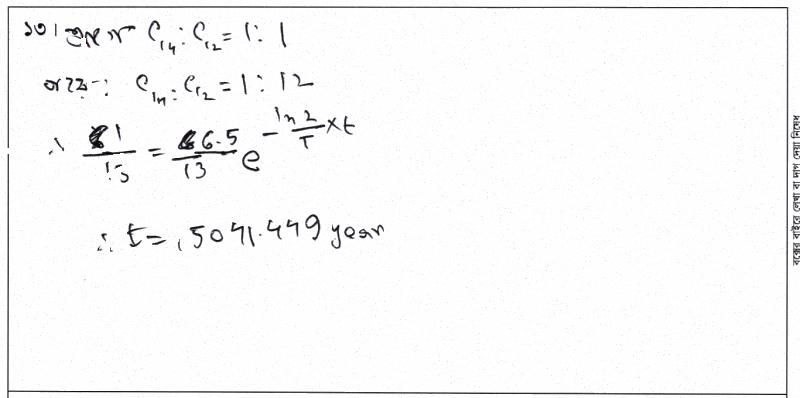 ১৩। প্রথমে C₁₄ : C₁₂ = 1 : 1
C₁₄ : C₁₂ = 1 : 12
∴ 1/13 = 6.5/13 e^(-ln2/T × t)
∴ t = 5041.449 year
বক্সের বাইরে লেখা বা দাগ দেয়া নিষেধ